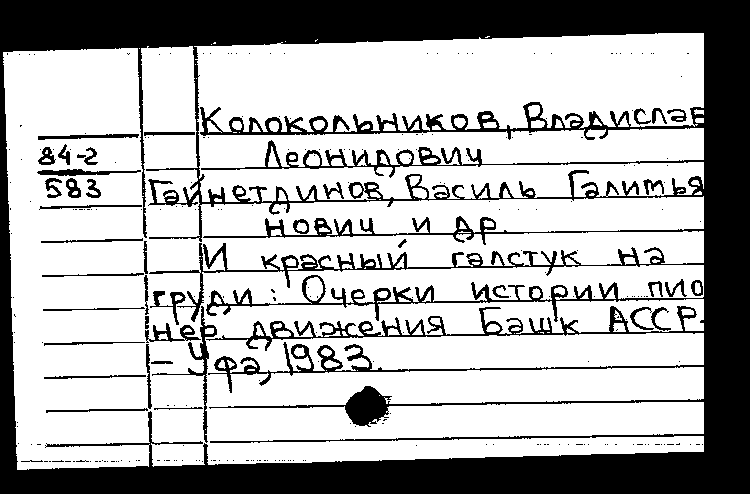 Колокольников, Владислав
84-2 Леонидович
583 Гайнетдинов, Василь Галитья
нович и др.
И красный галстук на
груди: Очерки истории пио
нер. движения Башк АССР.
– Уфа, 1983.